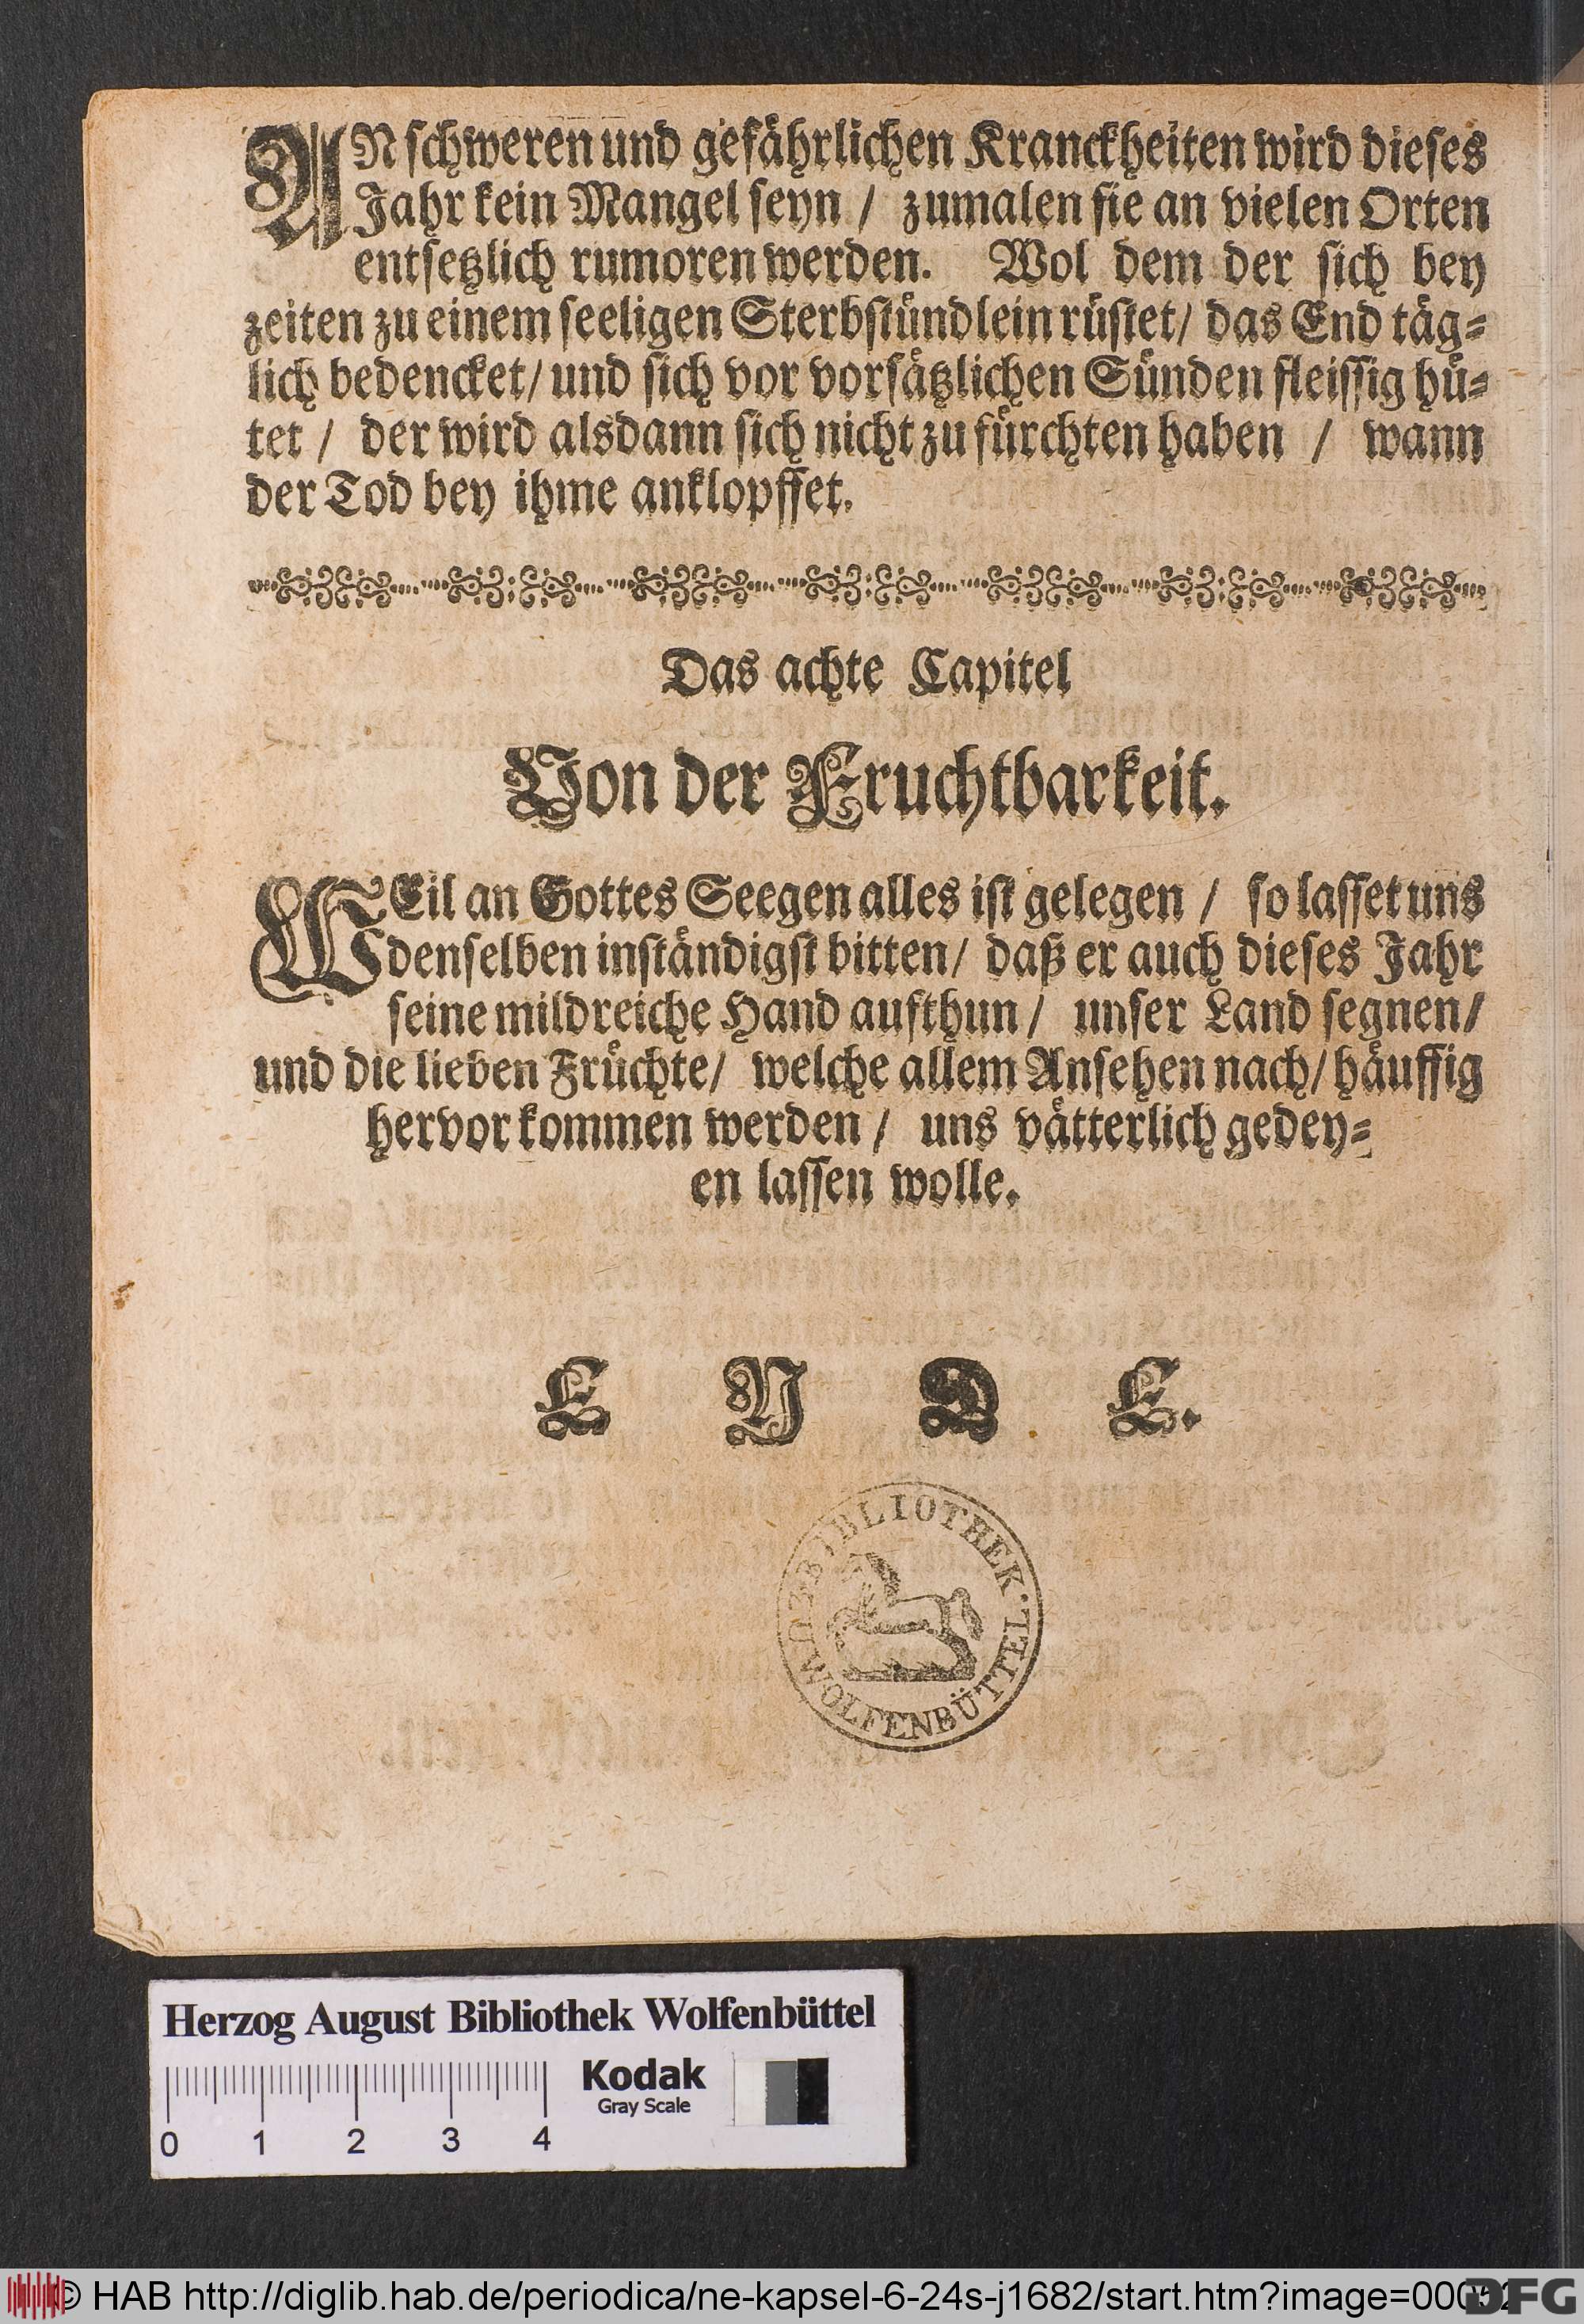 AN schweren und gefährlichen Kranckheiten wird dieses
Jahr kein Mangel seyn / zumalen sie an vielen Orten
entsetzlich rumoren werden. Wol dem der sich bey
zeiten zu einem seeligen Sterbstündlein rüstet/ das End täg=
lich bedencket/ und sich vor vorsätzlichen Sünden fleissig hü=
tet / der wird alsdann sich nicht zu fürchten haben / wann
der Tod bey ihme anklopffet.
Das achte Capitel
Von der Fruchtbarkeit.
WEil an Gottes Seegen alles ist gelegen / so lasset uns
denselben inständigst bitten/ daß er auch dieses Jahr
seine mildreiche Hand aufthun / unser Land segnen/
und die lieben Früchte/ welche allem Ansehen nach/ häuffig
hervor kommen werden / uns vätterlich gedey=
en lassen wolle.
E N D E.
BIBLIOTHEK·
WOLFENBÜTTEL
Herzog August Bibliothek Wolfenbüttel
Kodak
Gray Scale
0 1 2 3 4
© HAB http://diglib.hab.de/periodica/ne-kapsel-6-24s-j1682/start.htm?image=00052
DFG